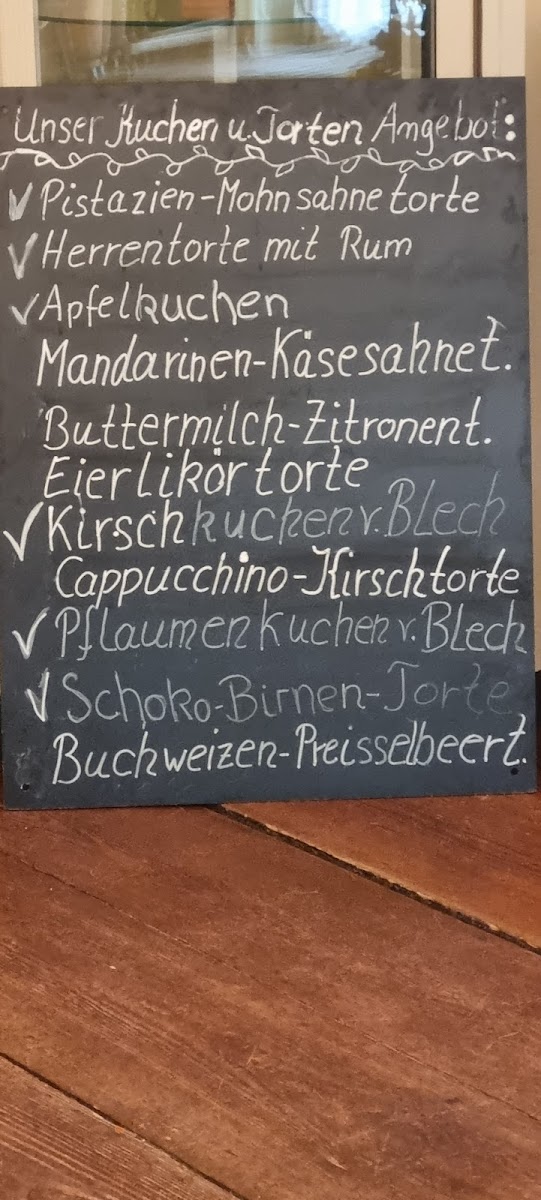 Unser Kuchen u. Torten Angebot:
✓ Pistazien-Mohnsahnetorte
✓ Herrentorte mit Rum
✓ Apfelkuchen
Mandarinen-Käsesahnet.
Buttermilch-Zitronent.
Eierlikörtorte
✓ Kirschkuchen v. Blech
Cappucchino-Kirschtorte
✓ Pflaumenkuchen v. Blech
✓ Schoko-Birnen-Torte
Buchweizen-Preisselbeert.